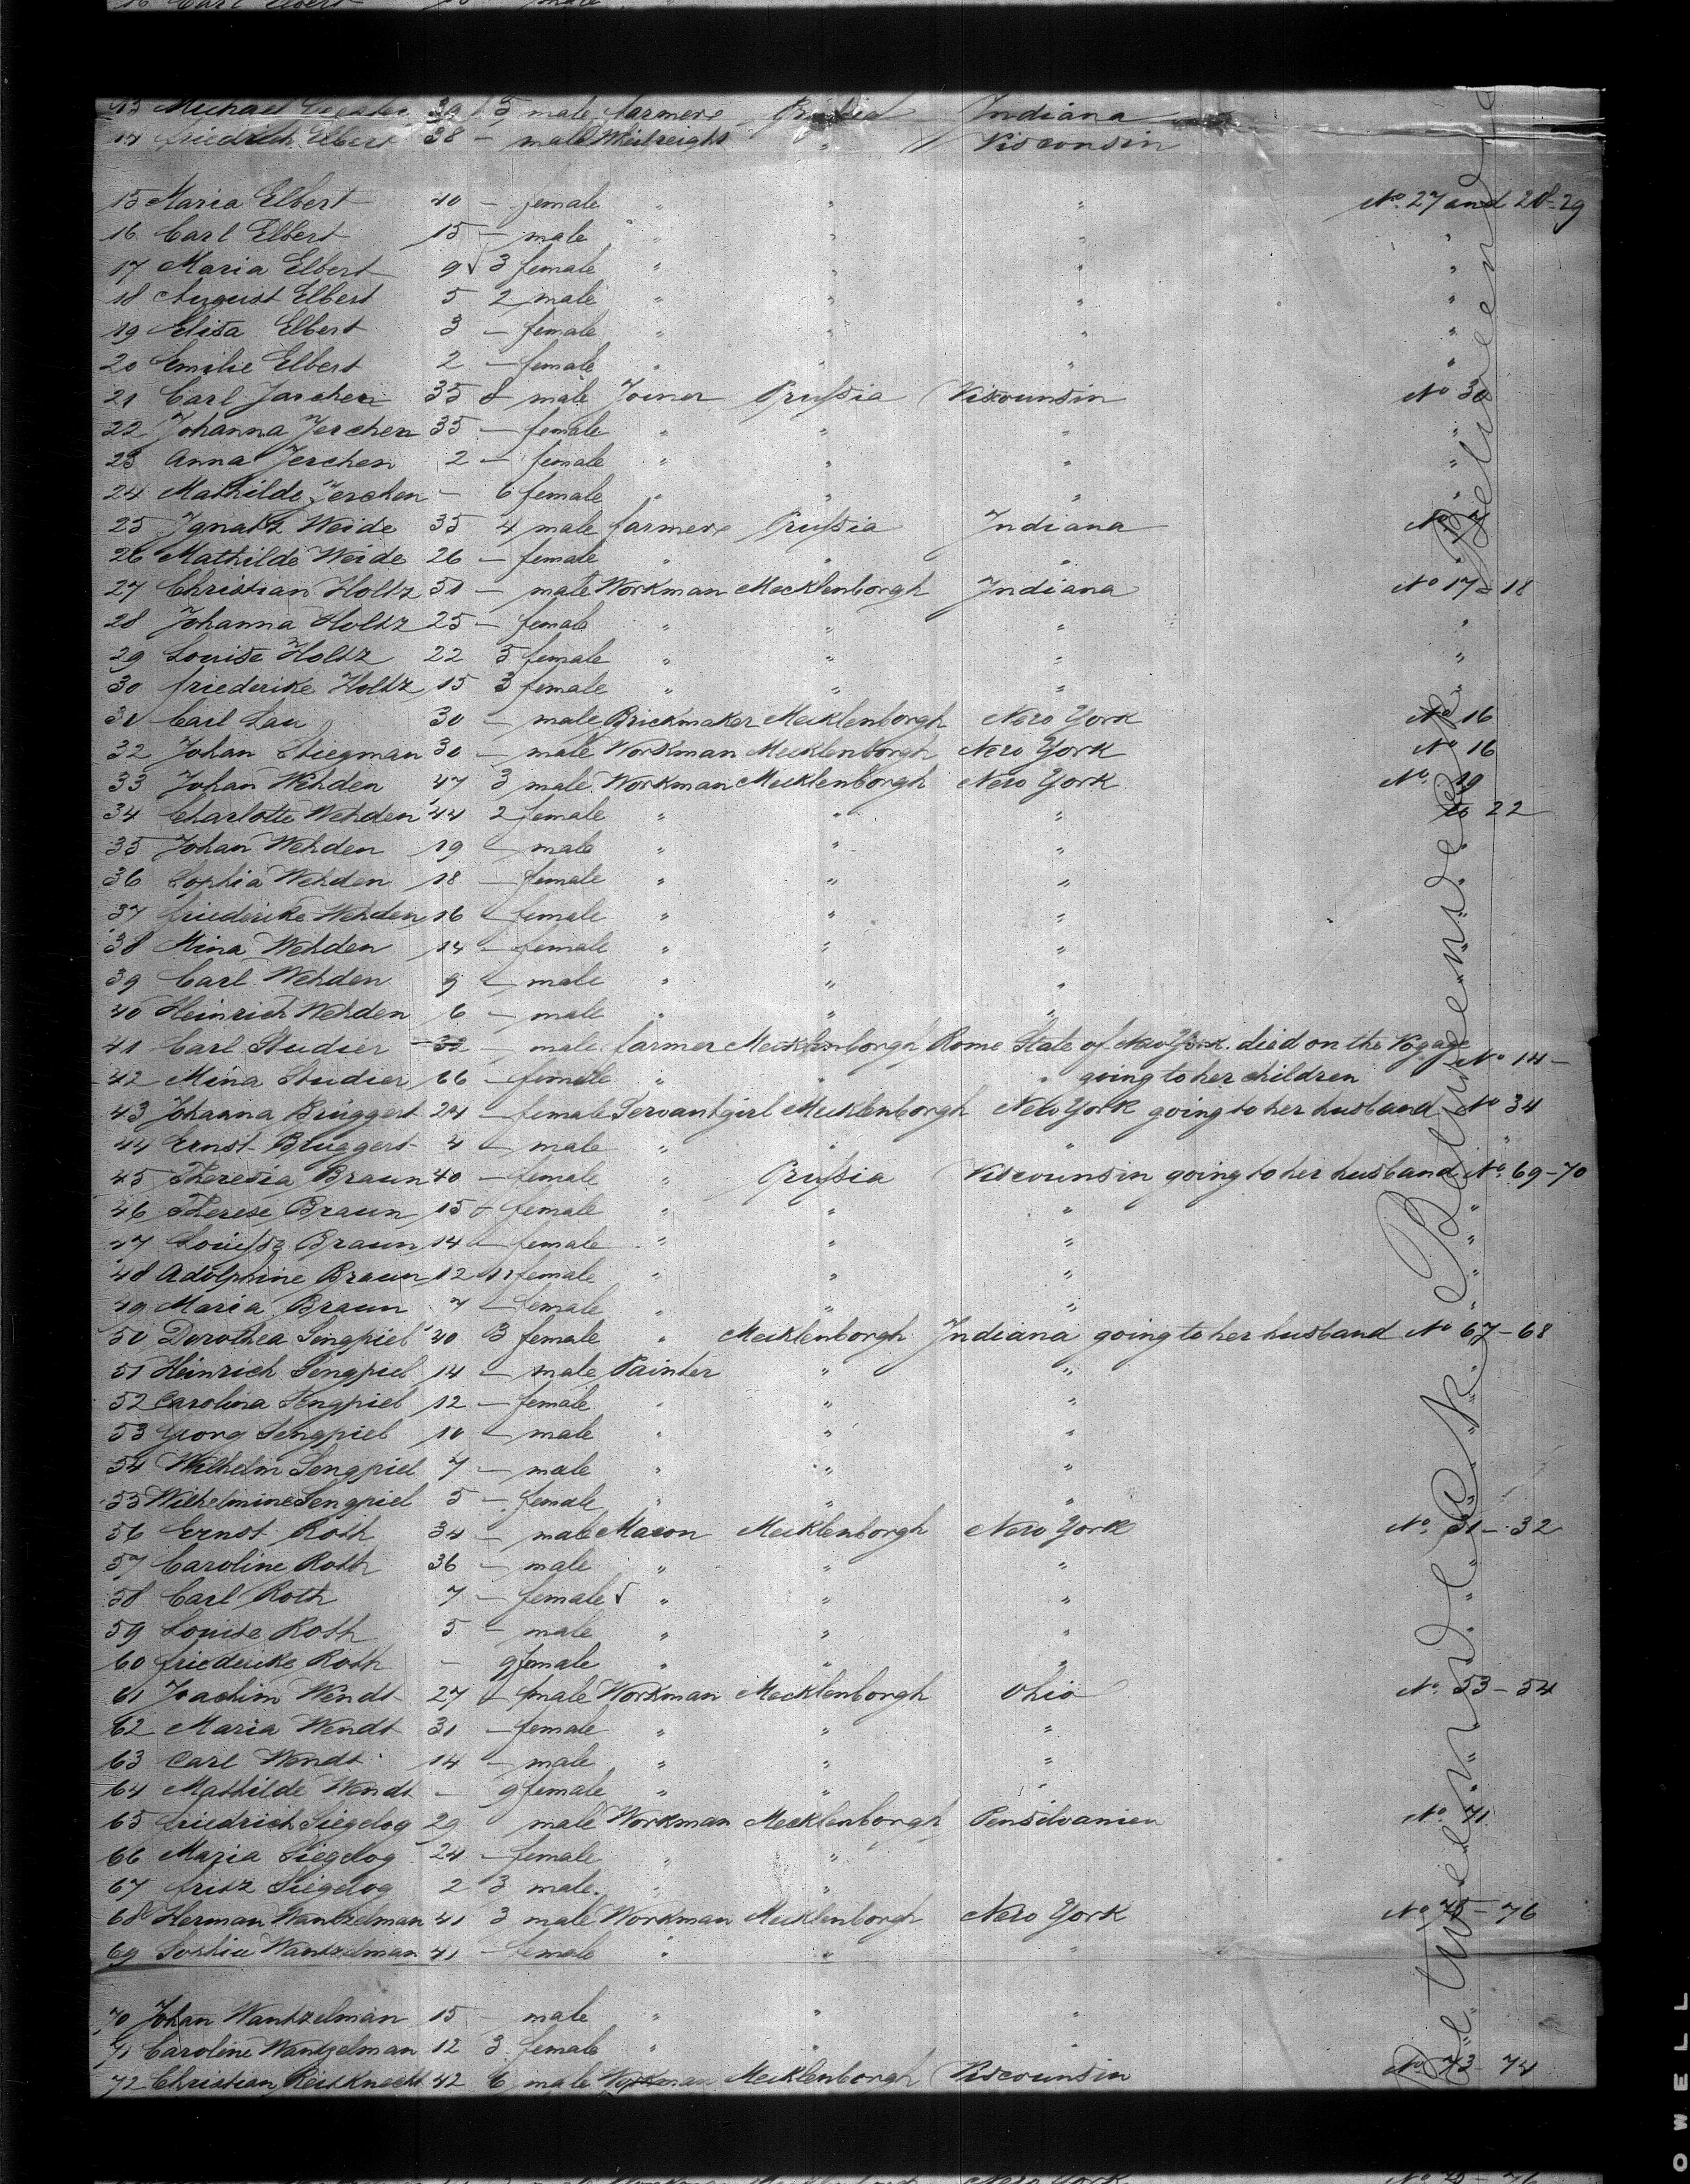 16 Carl Elbert 15 - male "
13 Michael 30 5 male farmers Prussia Indiana
14 friedrich Elbert 38 - male Wheilreight " Visconsin
15 Maria Elbert 40 - female " " " No. 27 and 28-29
16 Carl Elbert 15 - male " " " "
17 Maria Elbert 9 3 female " " " "
18 August Elbert 5 2 male " " " "
19 Elisa Elbert 3 - female " " " "
20 Emilie Elbert 2 - female " " " "
21 Carl Jerchen 35 8 male Joiner Prussia Viscounsin No 30
22 Johanna Jerchen 35 - female " " " "
23 Anna Jerchen 2 - female " " " "
24 Mathilde Jerchen - 6 female " " " "
25 Ignatz Weide 35 4 male farmers Prussia Indiana No
26 Mathilde Weide 26 - female " " " "
27 Christian Holtz 51 - male Workman Mecklenborgh Indiana No 17 & 18
28 Johanna Holtz 25 - female " " " "
29 Louise Holtz 22 5 female " " " "
30 friederike Holtz 15 3 female " " " "
31 Carl Lau 30 - male Brickmaker Mecklenborgh New York No 16
32 Johan Stiegman 30 - male Workman Mecklenborgh New York No 16
33 Johan Wehden 47 3 male Workman Mecklenborgh New York No. 19
34 Charlotte Wehden 44 2 female " " " to 22
35 Johan Wehden 19 - male " " " "
36 Sophia Wehden 18 - female " " " "
37 friederike Wehden 16 - female " " " "
38 Mina Wehden 14 - female " " " "
39 Carl Wehden 9 - male " " " "
40 Heinrich Wehden 6 - male " " " "
41 Carl Studier 32 - male farmer Mecklenborgh Rome State of New York. died on the Vogage
42 Mina Studier 66 - female " " " going to her children No 14 -
43 Johanna Brüggert 24 - female Servantgirl Mecklenborgh New York going to her husband No 34
44 Ernst Brüggert 4 - male " " " "
45 Theresia Braun 40 - female " Prussia Viscounsin going to her husband No. 69-70
46 Therese Braun 15 8 female " " " "
47 Louisse Braun 14 - female " " " "
48 Adolphine Braun 12 11 female " " " "
49 Maria Braun 7 - female " " " "
50 Dorothea Sengpiel 40 3 female " Mecklenborgh Indiana going to her husband No 67-68
51 Heinrich Sengpiel 14 - male Painter " " "
52 Carolina Sengpiel 12 - female " " " "
53 Georg Sengpiel 10 - male " " " "
54 Wilhelm Sengpiel 7 - male " " " "
55 Wilhelmine Sengpiel 5 - female " " " "
56 Ernst Roth 34 - male Mason Mecklenborgh New York No. 31-32
57 Caroline Roth 36 - male " " " "
58 Carl Roth 7 - female " " " "
59 Louise Roth 5 - male " " " "
60 friederike Roth - 9 female " " " "
61 Joachim Wendt 27 - male Workman Mecklenborgh Ohio No. 53-54
62 Maria Wendt 31 - female " " "
63 Carl Wendt 14 - male " " "
64 Mathilde Wendt - 9 female " " "
65 friedrich Siegelog 29 male Workman Mecklenborgh Pensilvanien No. 71
66 Maria Siegelog 24 - female " "
67 fritz Siegelog 2 3 male. " "
68 Herman Wantzelman 41 3 male Workman Mecklenborgh New York No 75-76
69 Sophia Wantzelman 41 - female " " "
70 Johan Wantzelman 15 - male " " "
71 Caroline Wantzelman 12 3 female " " "
72 Christian Reisknecht 42 6 male Workman Mecklenborgh Viscounsin No 73-74
Between decks
New York No 75-76
OWELL